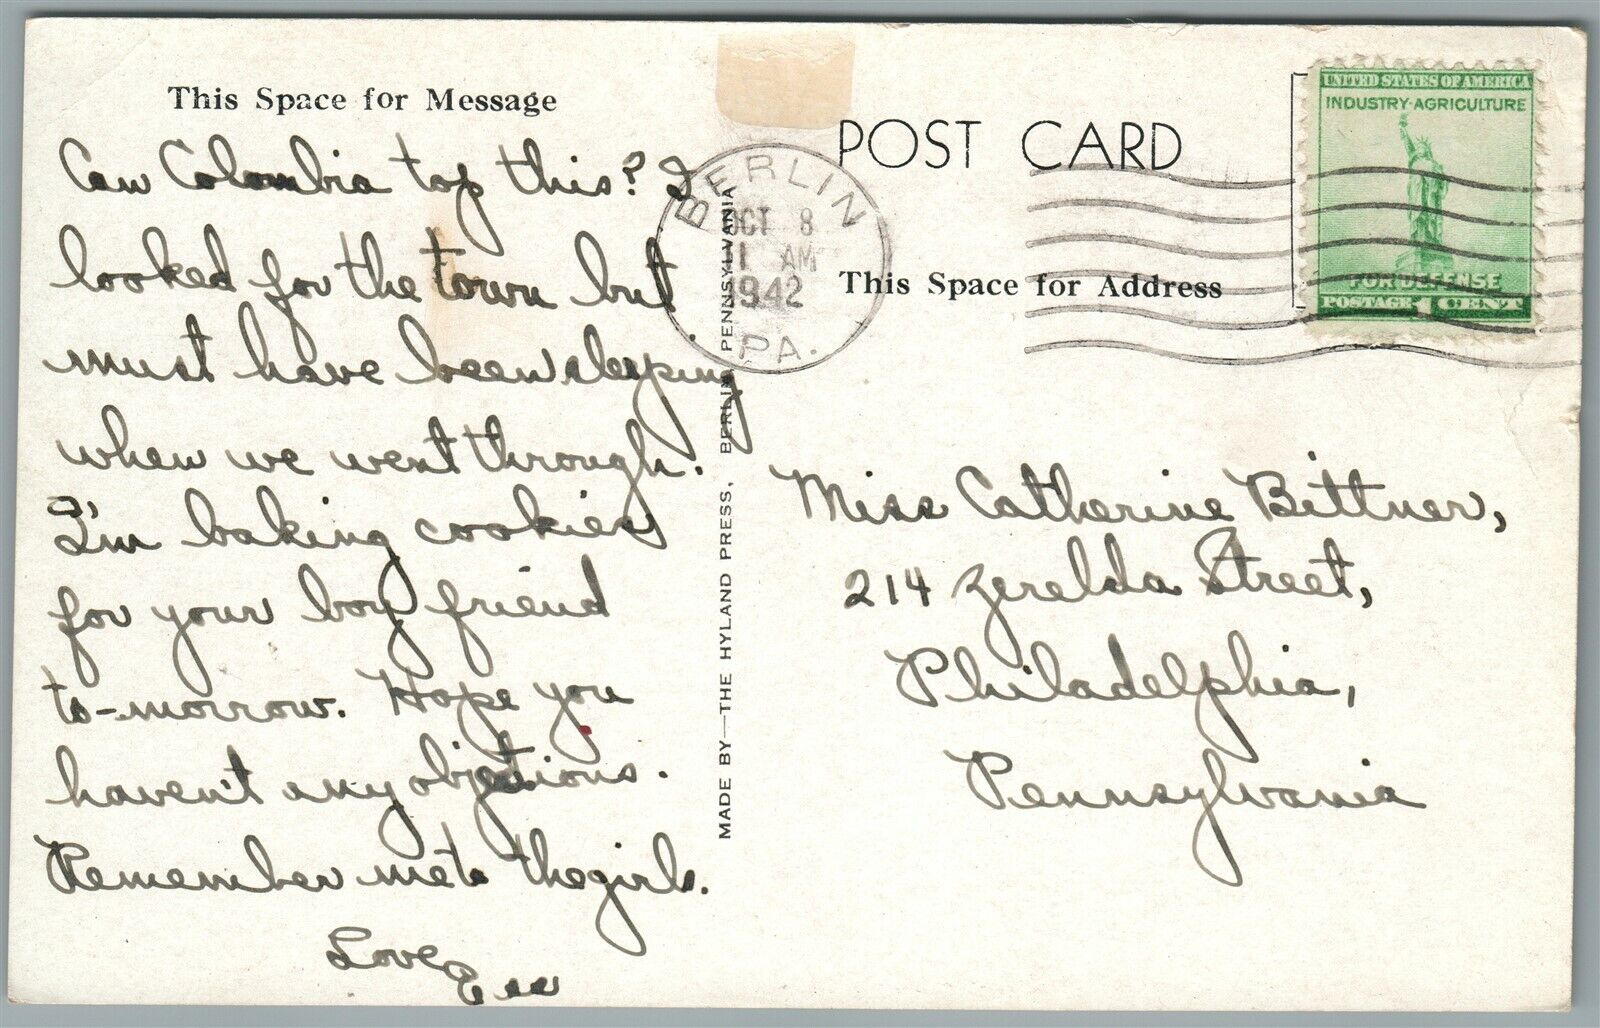 This Space for Message
Can Colombia top this? I
looked for the town but
must have been sleeping
when we went through.
I'm baking cookies
for your boy friend
to-morrow. Hope you
haven't any objections.
Remember me to the girls.
Love,
MADE BY—THE HYLAND PRESS, BERLIN, PENNSYLVANIA
POST CARD
BERLIN
OCT 8
AM
1942
PA.
This Space for Address
UNITED STATES OF AMERICA
INDUSTRY-AGRICULTURE
FOR DEFENSE
POSTAGE 1 CENT
Miss Catherine Bittner,
214 Zerelda Street,
Philadelphia,
Pennsylvania